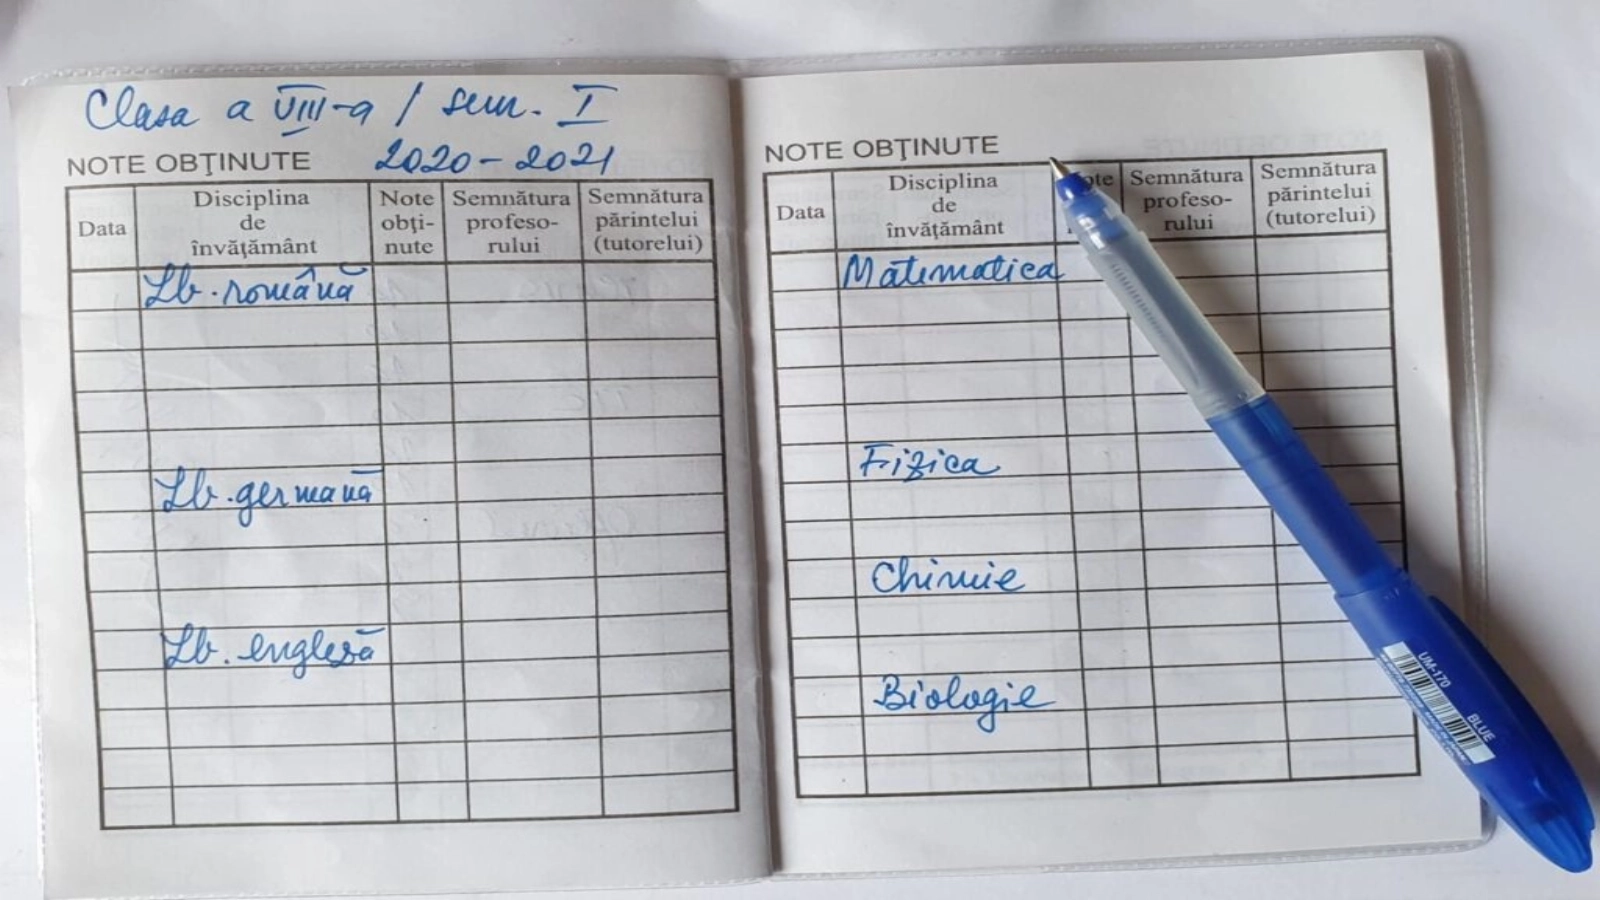 Clasa a VIII-a / sem. I
NOTE OBŢINUTE 2020-2021
Data
Disciplina
de
învăţământ
Note
obţi-
nute
Semnătura
profeso-
rului
Semnătura
părintelui
(tutorelui)
Lb. română
Lb. germană
Lb. engleză
NOTE OBŢINUTE
Data
Disciplina
de
învăţământ
ote
Semnătura
profeso-
rului
Semnătura
părintelui
(tutorelui)
Matematica
Fizica
Chimie
Biologie
UM-170
BLUE